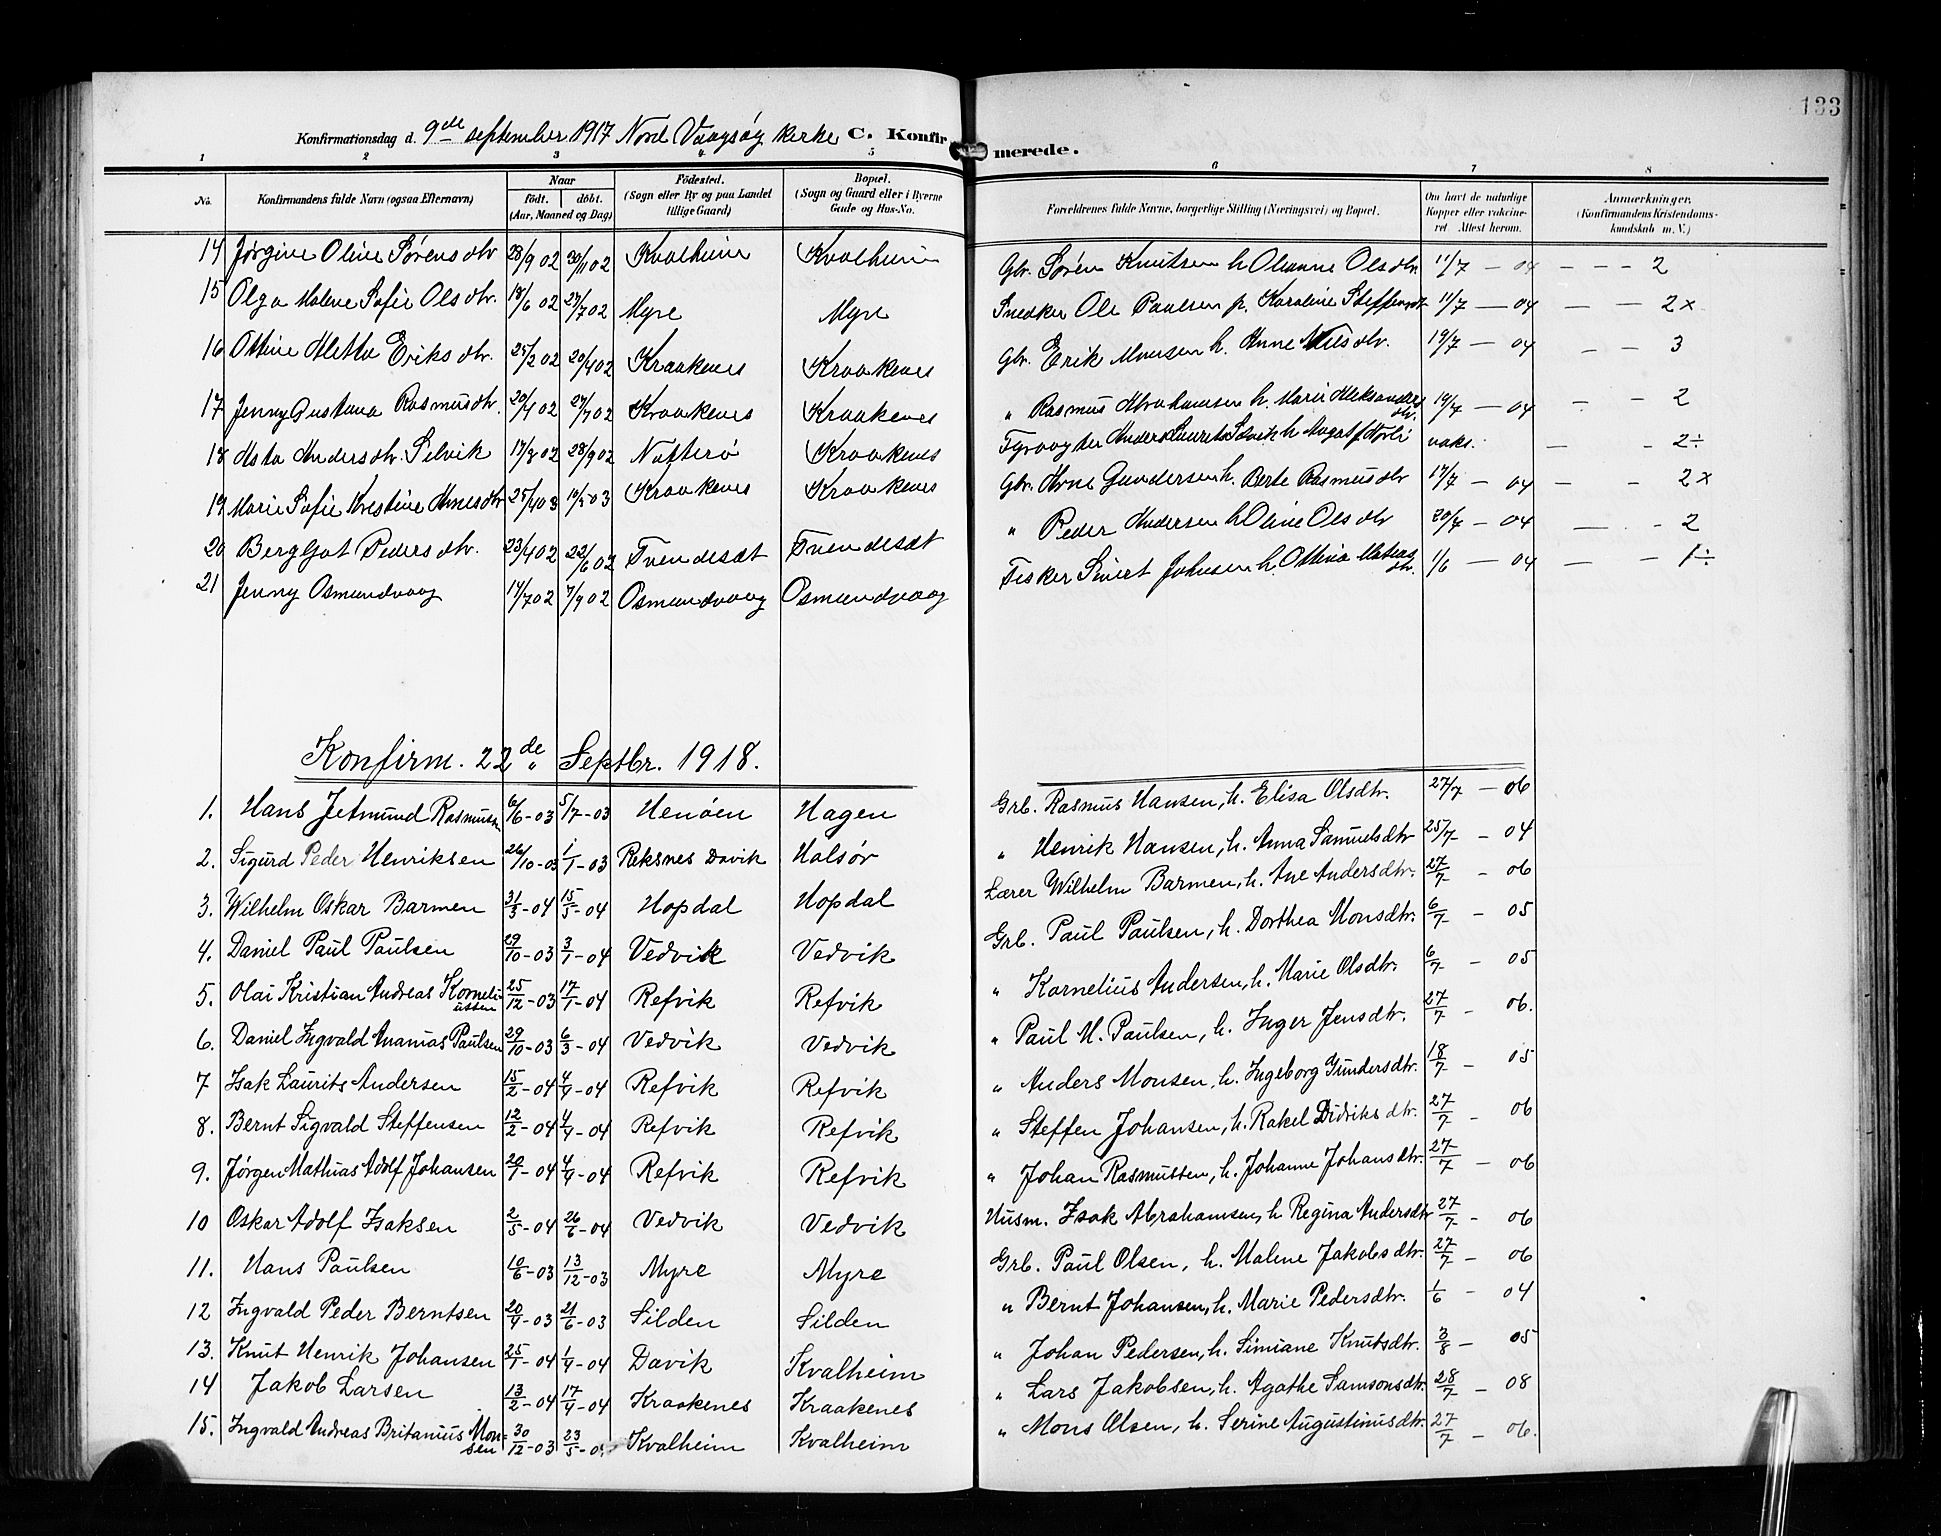 133
Konfirmationsdag d. 9de september 1917 Nord Vaagsøy kirke C. Konfirmerede.
1 2 3 4 5 6 7 8
No. Konfirmandens fulde Navn (ogsaa Efternavn) Naar født. døbt. (Aar, Maaned og Dag) Fødested. (Sogn eller By og paa Landet tillige Gaard) Bopæl. (Sogn og Gaard eller i Byerne Gade og Hus-No. Forældrenes fulde Navne, borgerlige Stilling (Næringsvei) og Bopæl. Om havt de naturlige Kopper eller vakcineret Attest herom. Anmærkninger, (Konfirmandens Kristendomskundskab m. V.)
14 Jørgine Oline Sørensdtr 28/9 02 30/11 02 Kvalheim Kvalheim Gbr. Søren Knutsen h Oleanne Olsdtr 11/7 - 04 - - - 2
15 Olga Malene Sofie Olsdtr. 18/6 02 27/7 02 Myre Myre Snedker Ole Paulsen h. Karoline Steffensdtr 11/7 - 04 - - 2 x
16 Ottine Aletta Eriksdtr. 25/2 02 20/4 02 Kraakenes Kraakenes Gbr. Erik Monsen h. Anne Nilsdtr. 19/7 - 04 - - 3
17 Jenny Gustava Rasmusdtr. 20/4 02 27/7 02 Kraakenes Kraakenes " Rasmus Abrahamsen h. Marie Aleksandersdtr. 19/7 - 04 - - 2
18 Asta Andersdtr. Selvik 17/8 02 28/9 02 Nøtterø Kraakenes Fyrvogter Anders Laurits Selvik h vaks. - - 2 ÷
19 Marie Sofie Kristine Arnesdtr 25/4 03 10/5 03 Kraakenes Kraakenes Gbr. Arne Gundersen h. Berte Rasmusdtr 17/7 - 04 - - 2 x
20 Bergljot Pedersdtr. 23/4 02 22/6 02 Tvendesæt Tvendesæt " Peder Andersen h Oline Olsdtr 20/7 - 04 - - 2
21 Jenny Osmundvaag 14/7 02 7/9 02 Osmundvaag Osmundvaag Fisker Sivert Johnsen h. Ottina Matiasdtr. 1/6 - 04 - - 1 ÷
Konfirm. 22de Septbr. 1918.
1. Hans Jetmund Rasmussen 6/6-03 5/7-03 Henøen Hagen Grb. Rasmus Hansen, h. Elisa Olsdtr. 27/7 - 06
2. Sigurd Peder Henriksen 26/10-03 1/1-03 Reksnes Davik Halsør " Henrik Hansen, h. Anna Samuelsdtr 25/7 - 04
3. Wilhelm Oskar Barmen 31/3-04 15/5-04 Hopdal Hopdal Lærer Wilhelm Barmen, h. Ane Andersdtr. 27/7 - 06
4. Daniel Paul Paulsen 29/10-03 3/1-04 Vedvik Vedvik Grb. Paul Paulsen, h. Dorthea Monsdtr. 6/7 - 05
5. Olai Kristian Andreas Korneliussen 25/12-03 17/1-04 Refvik Refvik " Kornelius Andersen, h. Marie Olsdtr. 6/7 - 05
6. Daniel Ingvald Ananias Paulsen 29/10-03 6/3-04 Vedvik Vedvik " Paul M. Paulsen, h. Inger Jensdtr. 27/7 - 06.
7 Isak Laurits Andersen 15/2-04 4/4-04 Refvik Refvik " Anders Monsen, h. Ingeborg Gundersdtr. 18/7 - 05
8. Bernt Sigvald Steffensen 12/2-04 4/4-04 Refvik Refvik " Steffen Johansen, h. Rakel Didriksdtr. 27/7 - 06
9. Jørgen Mathias Adolf Johansen 20/1-04 4/4-04 Refvik Refvik " Johan Rasmussen, h. Johanne Johansdtr. 27/7 - 06
10 Oskar Adolf Isaksen 2/5-04 26/6-04 Vedvik Vedvik Husm. Isak Abrahamsen, h Regina Andersdtr 27/7 - 06
11. Hans Paulsen 10/6-03 13/12-03 Myre Myre Grb. Paul Olsen, h. Malene Jakobsdtr. 27/7 - 06
12 Ingvald Peder Berntsen 20/4-03 21/6-03 Silden Silden " Bernt Johansen, h. Marie Pedersdtr. 1/6 - 04
13. Knut Henrik Johansen 25/1-04 1/4-04 Davik Kvalheim " Johan Pedersen, h. Simiane Knutsdtr. 3/8 - 05
14 Jakob Larsen 13/2-04 17/4-04 Kraakenes Kraakenes " Lars Jakobsen, h. Agathe Samsonsdtr. 28/7 - 08
15. Ingvald Andreas Britanius Monsen 30/12-03 23/5-0 Kvalheim Kvalheim " Mons Olsen, h. Serine Augustinusdtr. 27/7 - 06.